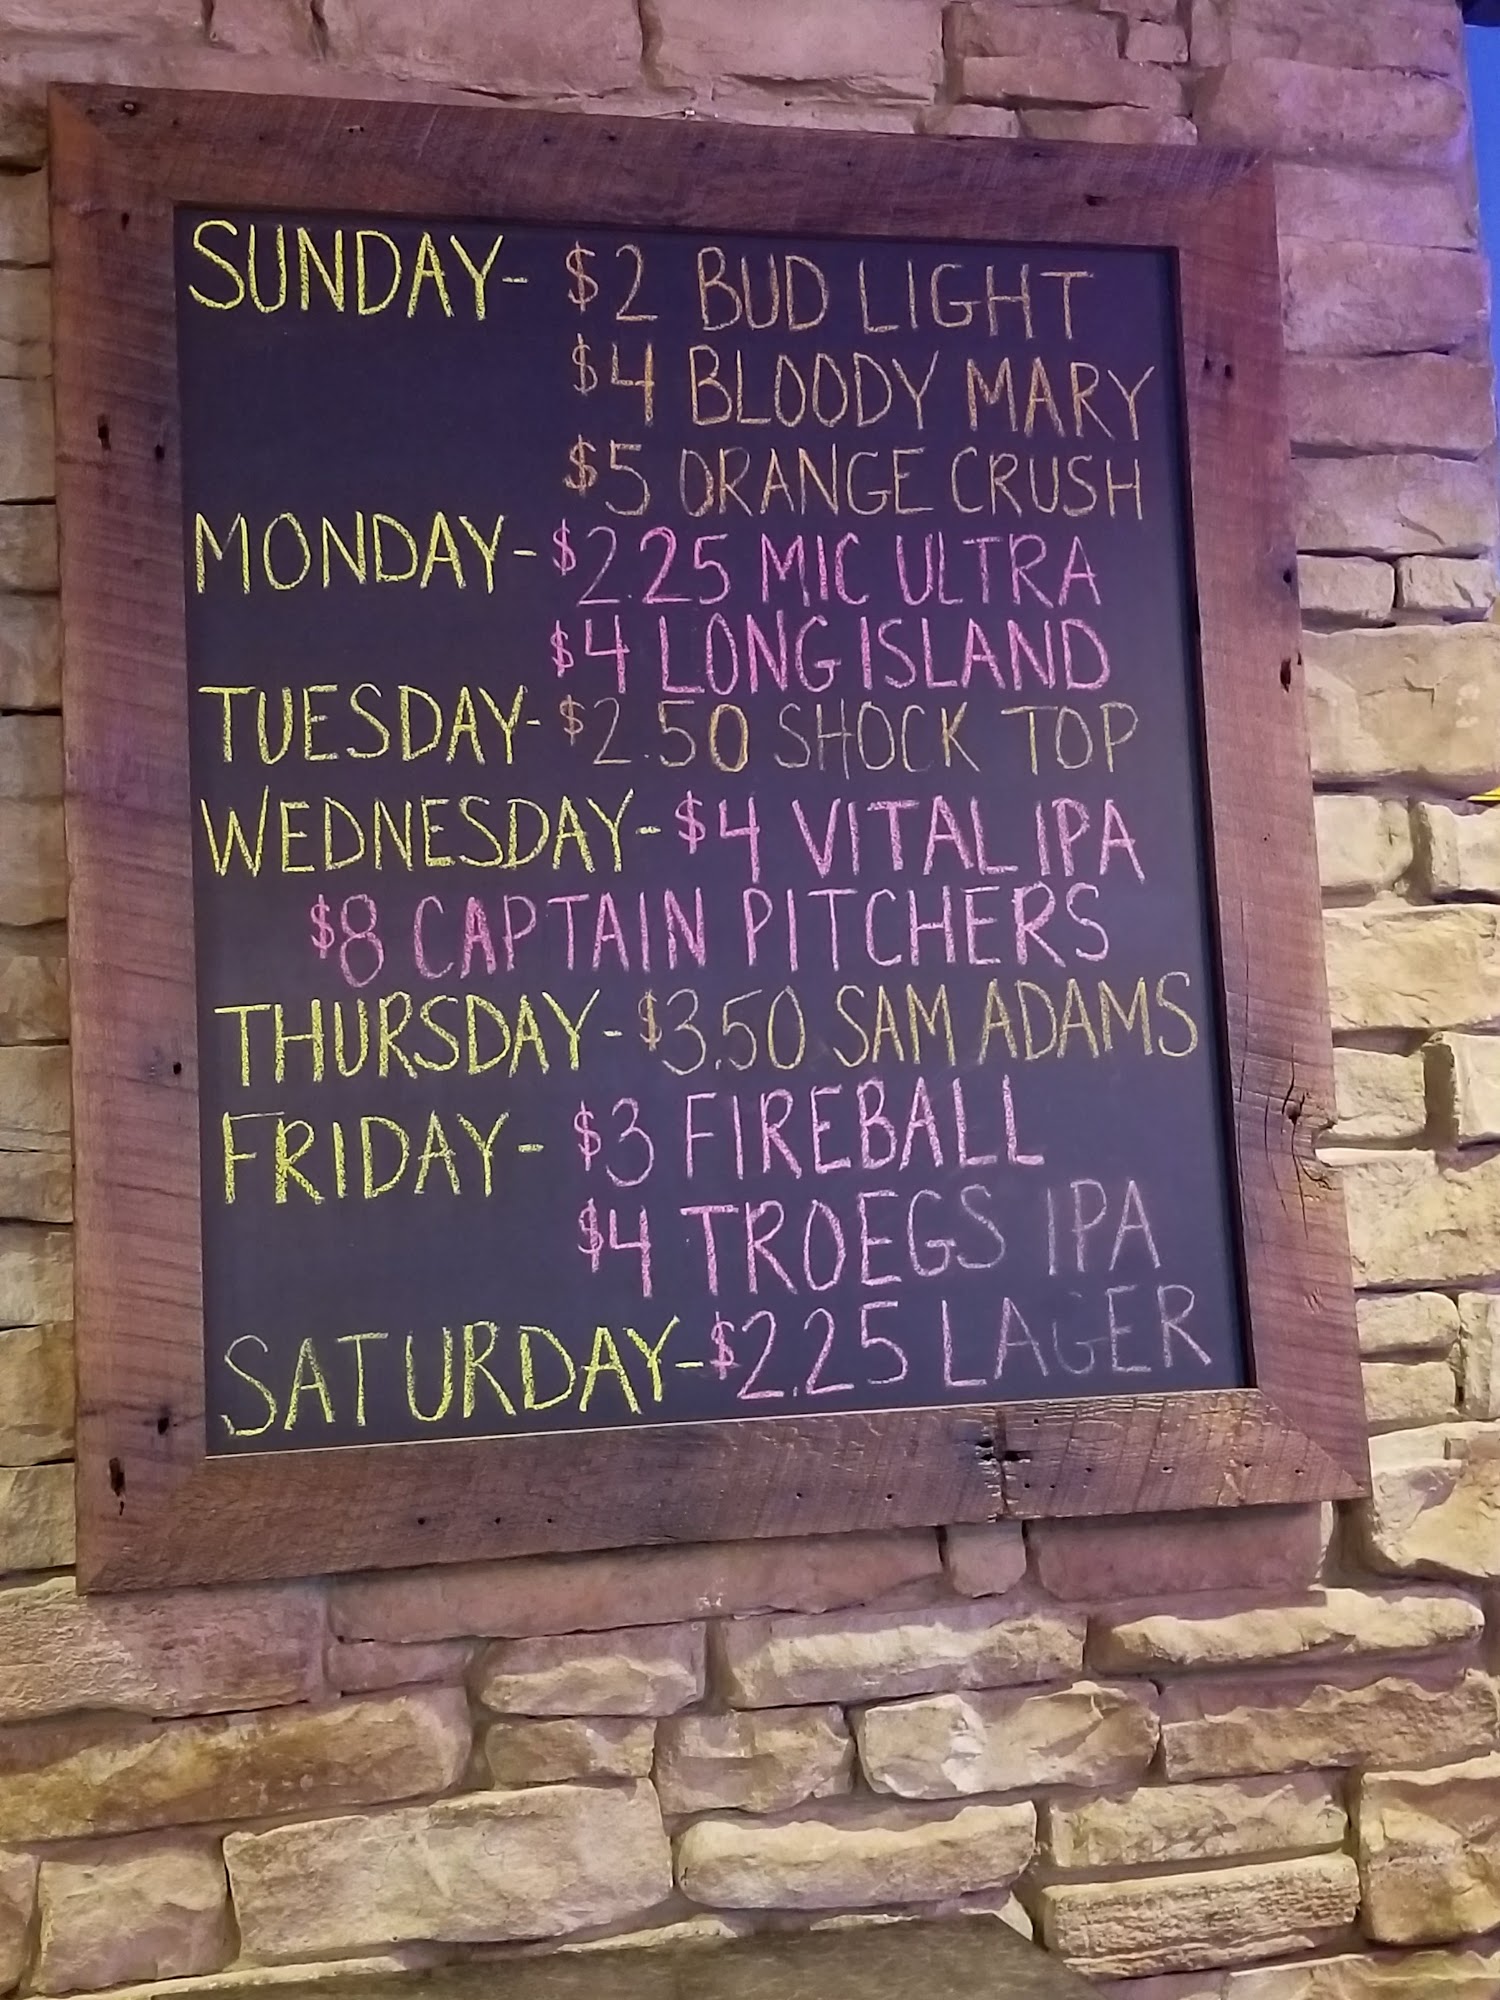 SUNDAY- $2 BUD LIGHT
$4 BLOODY MARY
$5 ORANGE CRUSH
MONDAY- $2.25 MIC ULTRA
$4 LONG ISLAND
TUESDAY- $2.50 SHOCK TOP
WEDNESDAY- $4 VITAL IPA
$8 CAPTAIN PITCHERS
THURSDAY- $3.50 SAM ADAMS
FRIDAY- $3 FIREBALL
$4 TROEGS IPA
SATURDAY- $2.25 LAGER